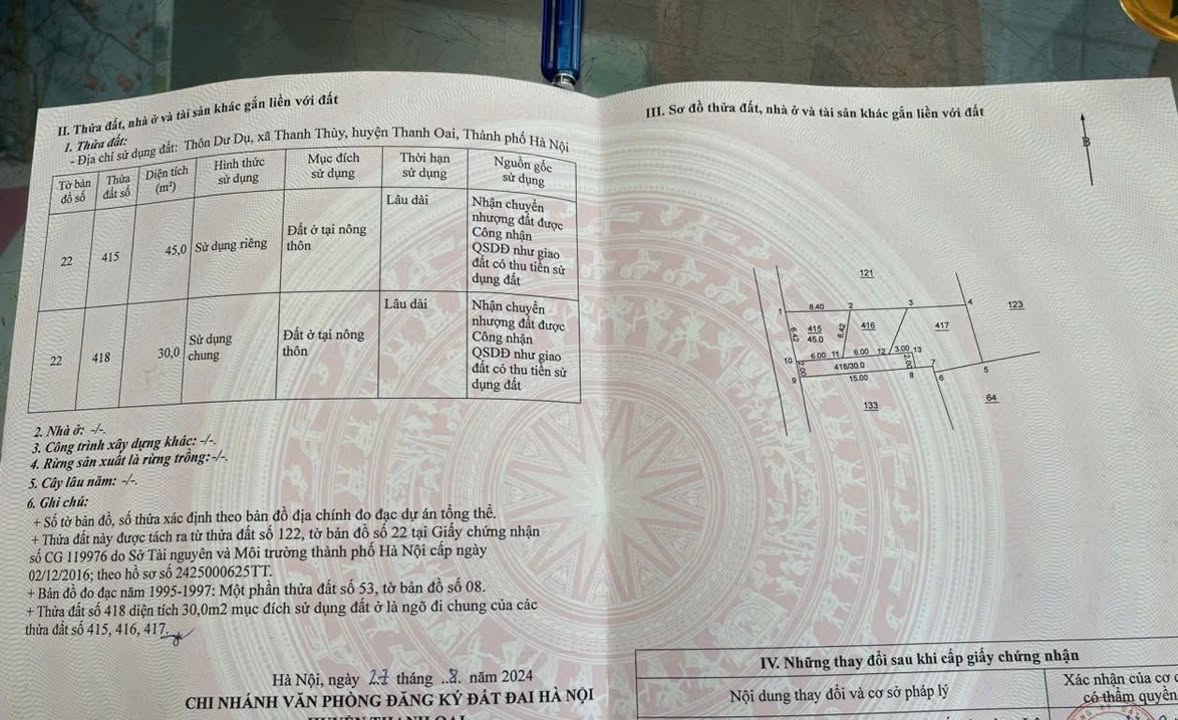 II. Thửa đất, nhà ở và tài sản khác gắn liền với đất
1. Thửa đất:
- Địa chỉ sử dụng đất: Thôn Dư Dụ, xã Thanh Thùy, huyện Thanh Oai, Thành phố Hà Nội
Tờ bản đồ số
Thửa đất số
Diện tích (m²)
Hình thức sử dụng
Mục đích sử dụng
Thời hạn sử dụng
Nguồn gốc sử dụng
22
415
45,0
Sử dụng riêng
Đất ở tại nông
thôn
Lâu dài
Nhận chuyển
nhượng đất được
Công nhận
QSDĐ như giao
đất có thu tiền sử
dụng đất
22
418
30,0
Sử dụng
chung
Đất ở tại nông
thôn
Lâu dài
Nhận chuyển
nhượng đất được
Công nhận
QSDĐ như giao
đất có thu tiền sử
dụng đất
2. Nhà ở: -/-.
3. Công trình xây dựng khác: -/-.
4. Rừng sản xuất là rừng trồng: -/-.
5. Cây lâu năm: -/-.
6. Ghi chú:
+ Số tờ bản đồ, số thửa xác định theo bản đồ địa chính đo đạc dự án tổng thể.
+ Thửa đất này được tách ra từ thửa đất số 122, tờ bản đồ số 22 tại Giấy chứng nhận
số CG 119976 do Sở Tài nguyên và Môi trường thành phố Hà Nội cấp ngày
02/12/2016; theo hồ sơ số 2425000625TT.
+ Bản đồ đo đạc năm 1995-1997: Một phần thửa đất số 53, tờ bản đồ số 08.
+ Thửa đất số 418 diện tích 30,0m2 mục đích sử dụng đất ở là ngõ đi chung của các
thửa đất số 415, 416, 417.
Hà Nội, ngày 27 tháng ..8. năm 2024
CHI NHÁNH VĂN PHÒNG ĐĂNG KÝ ĐẤT ĐAI HÀ NỘI
HUYỆN THANH OAI
III. Sơ đồ thửa đất, nhà ở và tài sản khác gắn liền với đất
B
121
1
8.40
2
3
4
123
6.43
415
45.0
6.42
416
417
10
6.00
11
6.00
12
3.00
13
2.00
418/30.0
2.00
7
9
15.00
8
6
5
133
64
IV. Những thay đổi sau khi cấp giấy chứng nhận
Nội dung thay đổi và cơ sở pháp lý
Xác nhận của cơ
có thẩm quyền